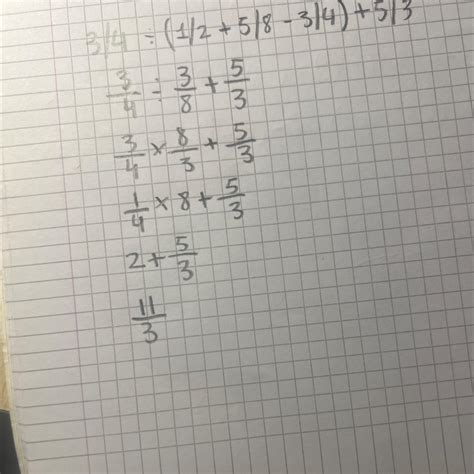 3/4 ÷ (1/2 + 5/8 - 3/4) + 5/3
3/4 ÷ 3/8 + 5/3
3/4 × 8/3 + 5/3
1/4 × 8 + 5/3
2 + 5/3
11/3